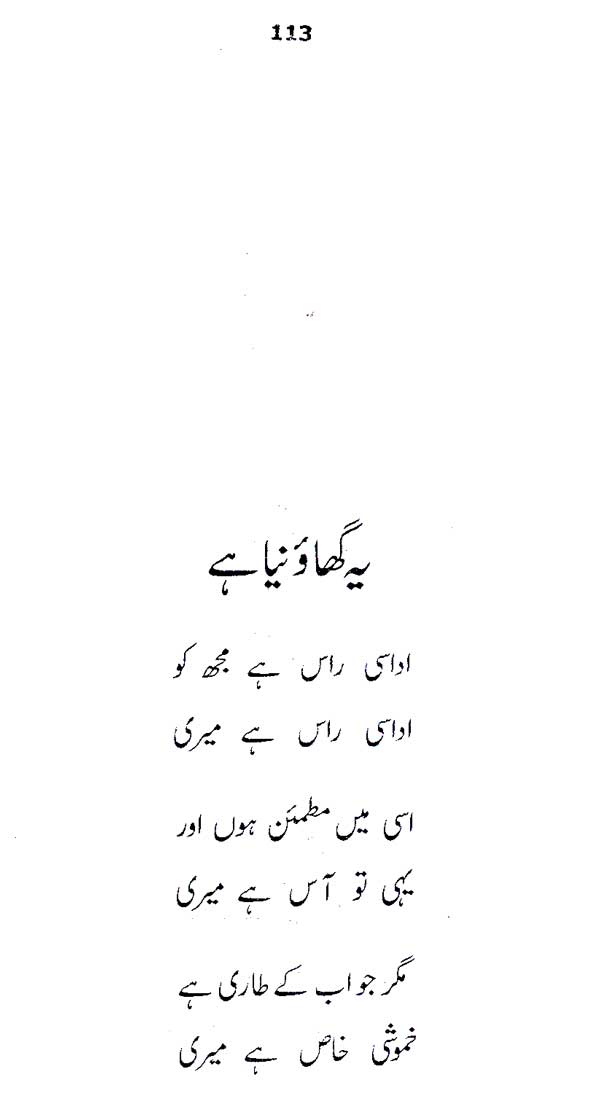 113
یہ گھاؤ نیا ہے
اداسی راس ہے مجھ کو
اداسی راس ہے میری
اسی میں مطمئن ہوں اور
یہی تو آس ہے میری
مگر جو اب کے طاری ہے
خموشی خاص ہے میری